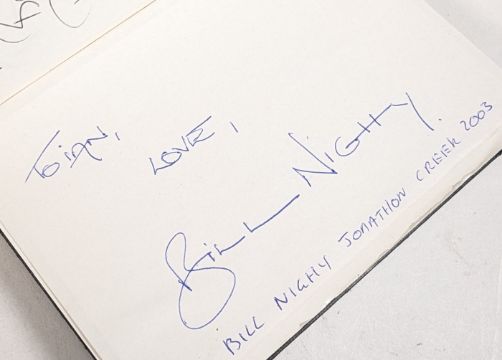 To IAN,
LOVE,
Bill Nighy.
BILL NIGHY JONATHON CREEK 2003